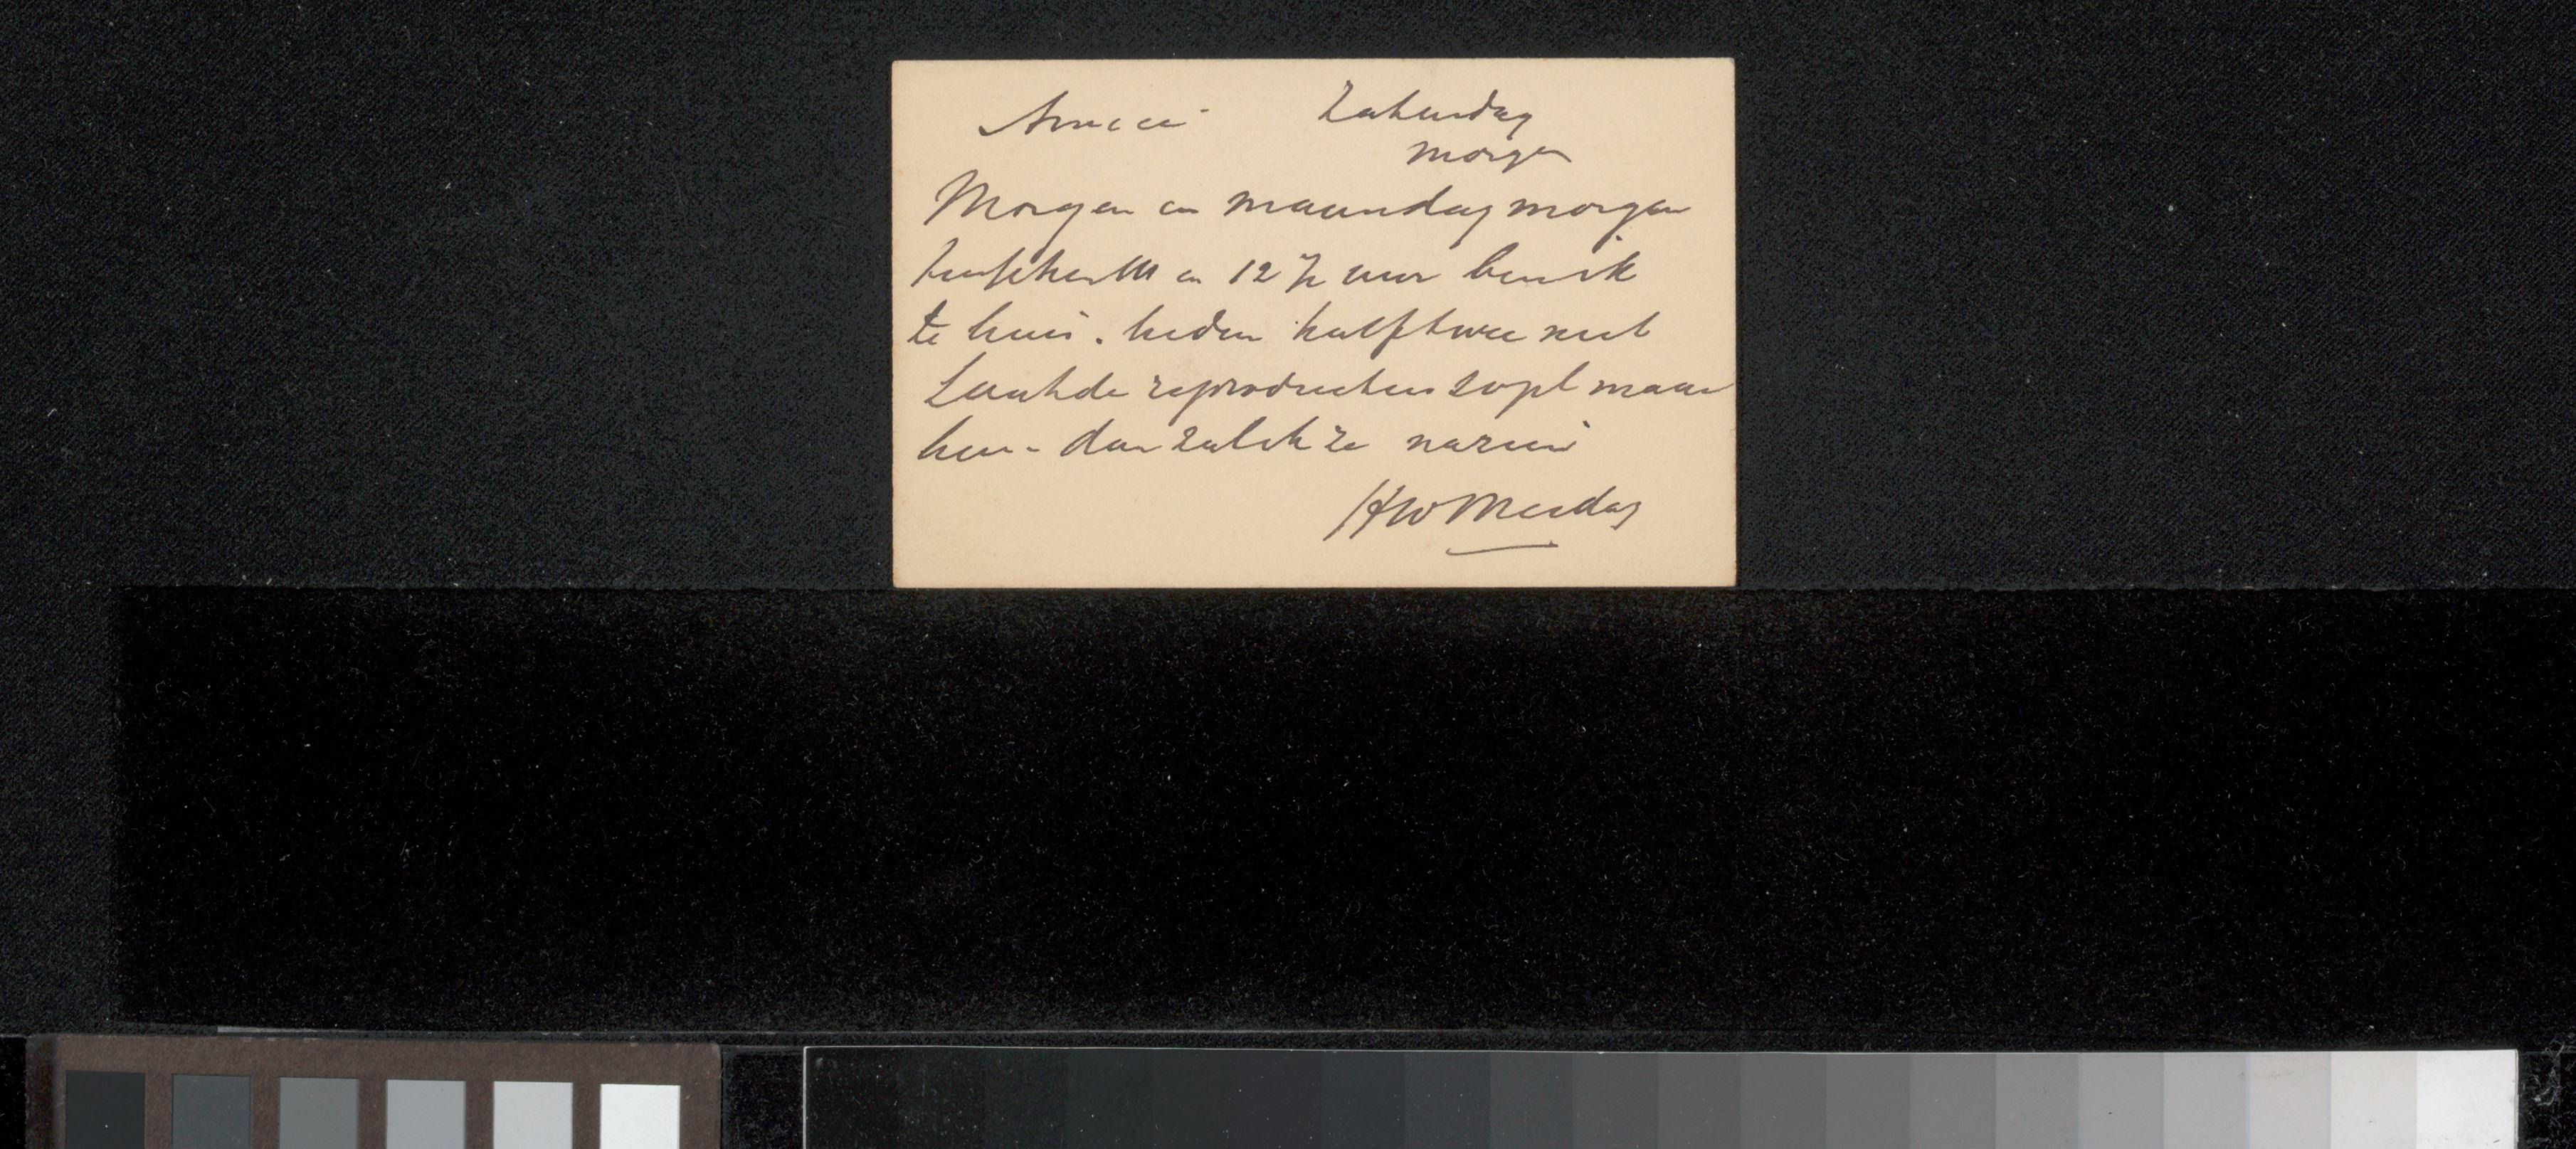 Amice Zaturdag
morgen
Morgen en maandag morgen
tusschen 11 en 12 ½ uur ben ik
te huis. heden half twee niet
Laat de reproducties svpl maar
hier - dan zal ik ze nazien
HW Mesdag